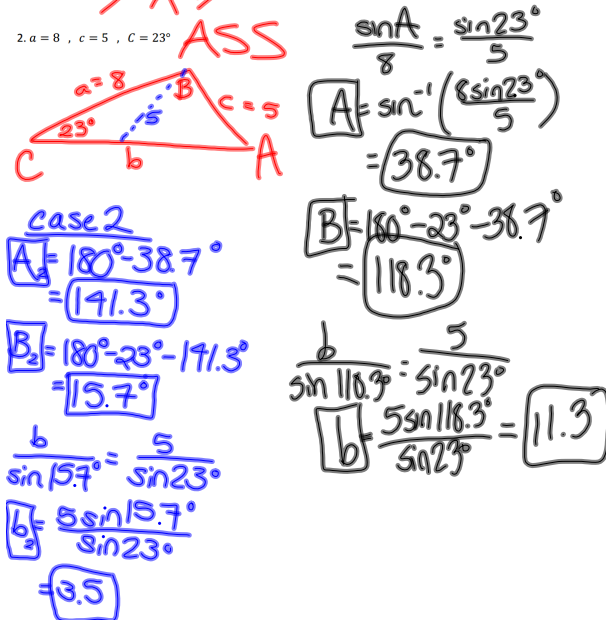 2. a = 8 , c = 5 , C = 23°
ASS
a = 8
B
c = 5
5
23°
C
b
A
sinA/8 = sin23°/5
A = sin⁻¹(8sin23°/5)
= 38.7°
B = 180°-23°-38.7°
= 118.3°
b/sin118.3° = 5/sin23°
b = 5sin118.3°/sin23° = 11.3
case 2
A₂ = 180°-38.7°
= 141.3°
B₂ = 180°-23°-141.3°
= 15.7°
b/sin15.7° = 5/sin23°
b₂ = 5sin15.7°/sin23°
= 3.5